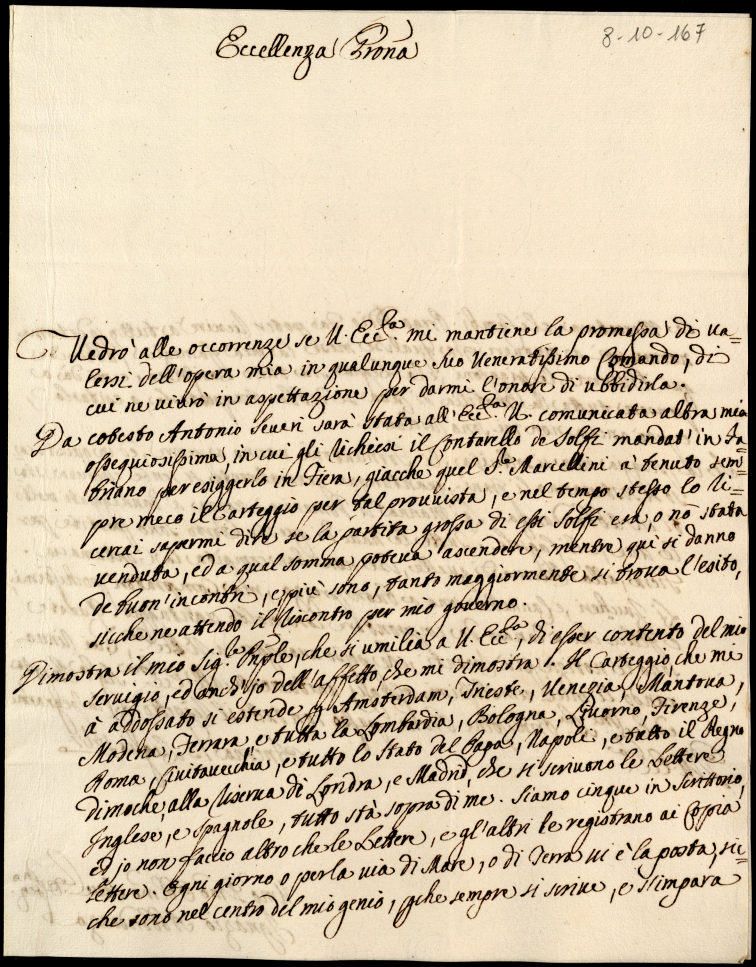 8-10-167
Eccellenza Pron̄a
Vedrò alle occorrenze se V. Ecc.za mi mantiene la promessa di va=
lersi dell'opera mia in qualunque suo Veneratissimo Comando, di
cui ne vivrò in aspettazione per darmi l'onore di ubbidirla.
Da codesto Antonio Severi sarà stata all'Ecc.za V. comunicata altra mia
ossequiosissima, in cui gli richiesi il Contarello de Solfi mandat' in Fa=
briano per esiggerlo in Fiera, giacche quel S.re Marcellini à tenuto sem=
pre meco il Carteggio per tal provvista, e nel tempo stesso lo ri=
cercai sapermi dire se la partita grossa di essi Solfi era, o nō stata
venduta, ed a qual somma poteva ascendere, mentre qui si danno
de buon'incontri, e più sono, tanto maggiormente si trova l'esito,
sicche ne attendo il riscontro per mio governo.
Dimostra il mio Sig.re Pnple, che si umilia a V. Ecc.za, di esser contento del mio
servigio, ed anch'jo dell'affetto che mi dimostra. Il Carteggio che mi
à addossato si estende p Amsterdam, Trieste, Venezia, Mantova,
Modena, Ferrara, e tutta la Lombardia, Bologna, Livorno, Firenze,
Roma, Civitavecchia, e tutto lo Stato del Papa, Napoli, e tutto il Regno
dimoche, alla riserva di Londra, e Madrid, che si scrivono le Lettere
Inglese, e Spagnole, tutto stà sopra di me. Siamo cinque in Scrittorio,
ed jo non faccio altro che le Lettere, e gl'altri le registrano ai Copia
Lettere. Ogni giorno o per la via di Mare, o di Terra vi è la posta, sic=
che sono nel centro del mio genio, pche sempre si scrive, e s'impara